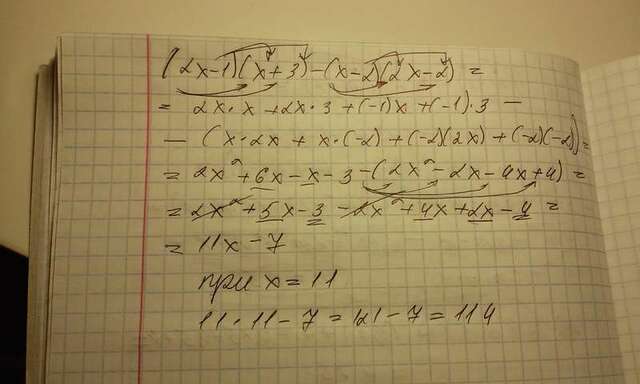 (2x-1)(x+3)-(x-2)(2x-2)=
=2x·x+2x·3+(-1)x+(-1)·3-
-(x·2x+x·(-2)+(-2)(2x)+(-2)(-2))=
=2x²+6x-x-3-(2x²-2x-4x+4)=
=2x²+5x-3-2x²+4x+2x-4=
=11x-7
при x=11
11·11-7=121-7=114